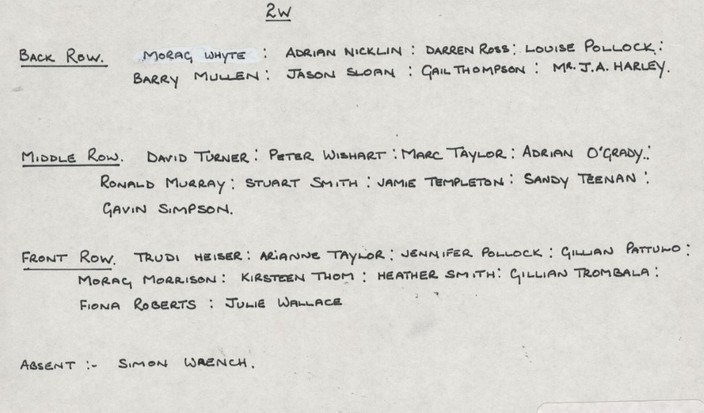 2W
BACK ROW. MORAG WHYTE : ADRIAN NICKLIN : DARREN ROSS : LOUISE POLLOCK :
BARRY MULLEN : JASON SLOAN : GAIL THOMPSON : MR. J.A. HARLEY.
MIDDLE ROW. DAVID TURNER : PETER WISHART : MARC TAYLOR : ADRIAN O'GRADY :
RONALD MURRAY : STUART SMITH : JAMIE TEMPLETON : SANDY TEENAN :
GAVIN SIMPSON.
FRONT ROW. TRUDI HEISER : ARIANNE TAYLOR : JENNIFER POLLOCK : GILLIAN PATTULLO :
MORAG MORRISON : KIRSTEEN THOM : HEATHER SMITH : GILLIAN TROMBALA :
FIONA ROBERTS : JULIE WALLACE
ABSENT :- SIMON WRENCH.